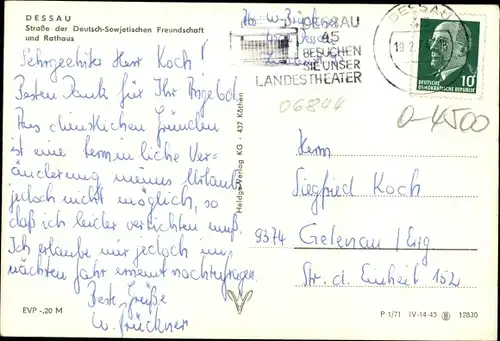 DESSAU
Straße der Deutsch-Sowjetischen Freundschaft
und Rathaus
Sehrgeehrter Herr Koch!
Besten Dank für Ihr Angebot.
Aus dienstlichen Gründen
ist eine terminliche Ver-
änderung meines Urlaubs
jedoch nicht möglich, so
daß ich leider verzichten muß.
Ich erlaube mir jedoch im
nächten Jahr erneut nachzufragen.
Beste Grüße
W. Brückner
EVP -,20 M
Heldge-Verlag KG - 437 Köthen
Abs W. Brückner
DESSAU
45
BESUCHEN
SIE UNSER
LANDESTHEATER
DESSAU
DEUTSCHE
DEMOKRATISCHE REPUBLIK
10
06844
0-4500
Herrn
Siegfried Koch
9374 Gelenau/Erg.
Str. d. Einheit 152
P 1/71 IV-14-45 12830